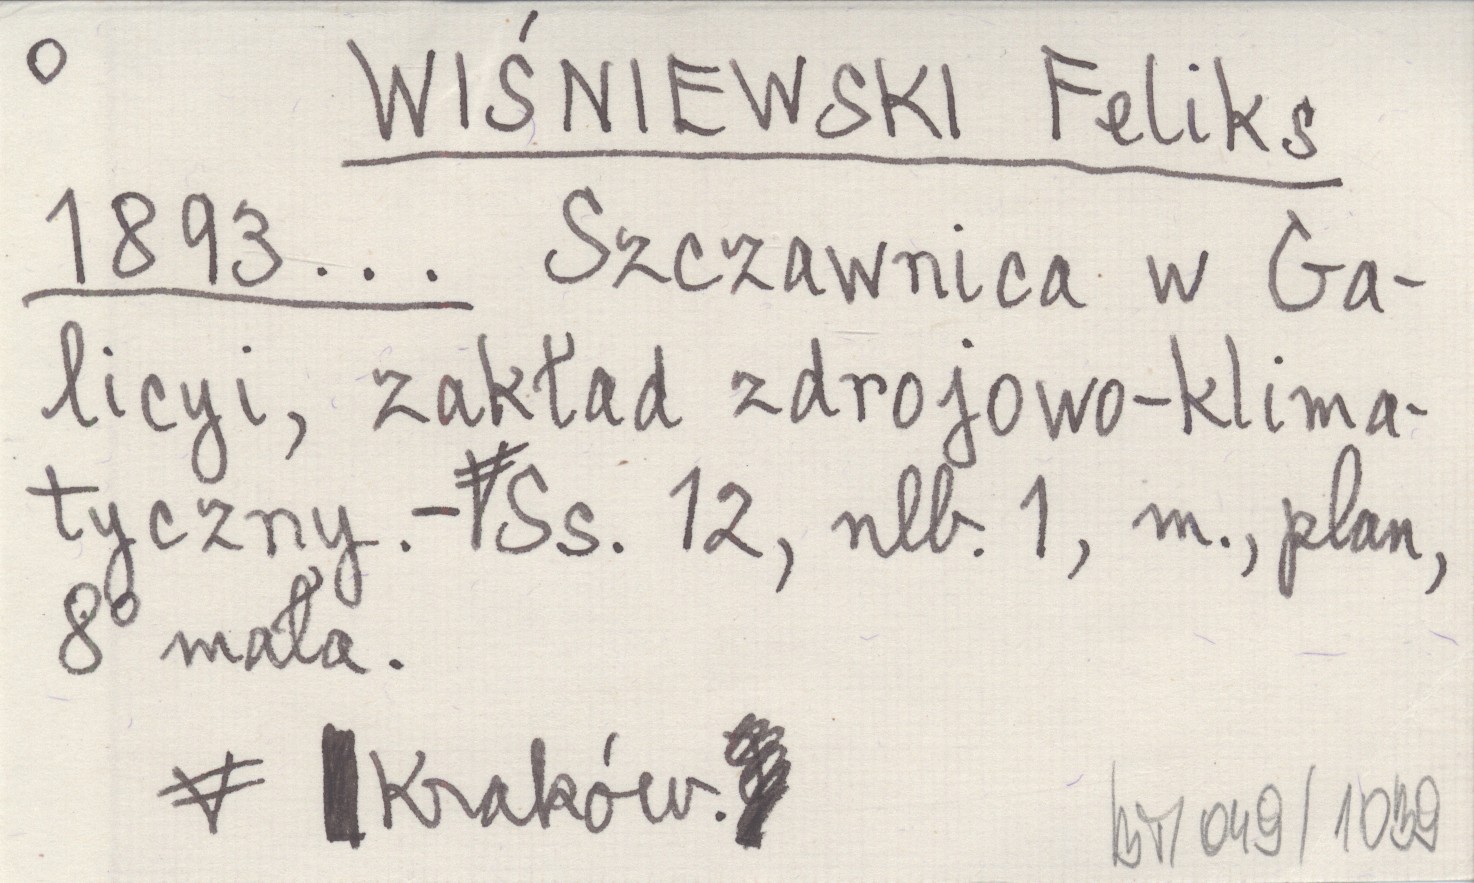 O WIŚNIEWSKI Feliks
1893... Szczawnica w Ga-
licyi, zakład zdrojowo-klima-
tyczny. - Ss. 12, nlb. 1, m., plan,
8° mała.
Kraków.
049/1039